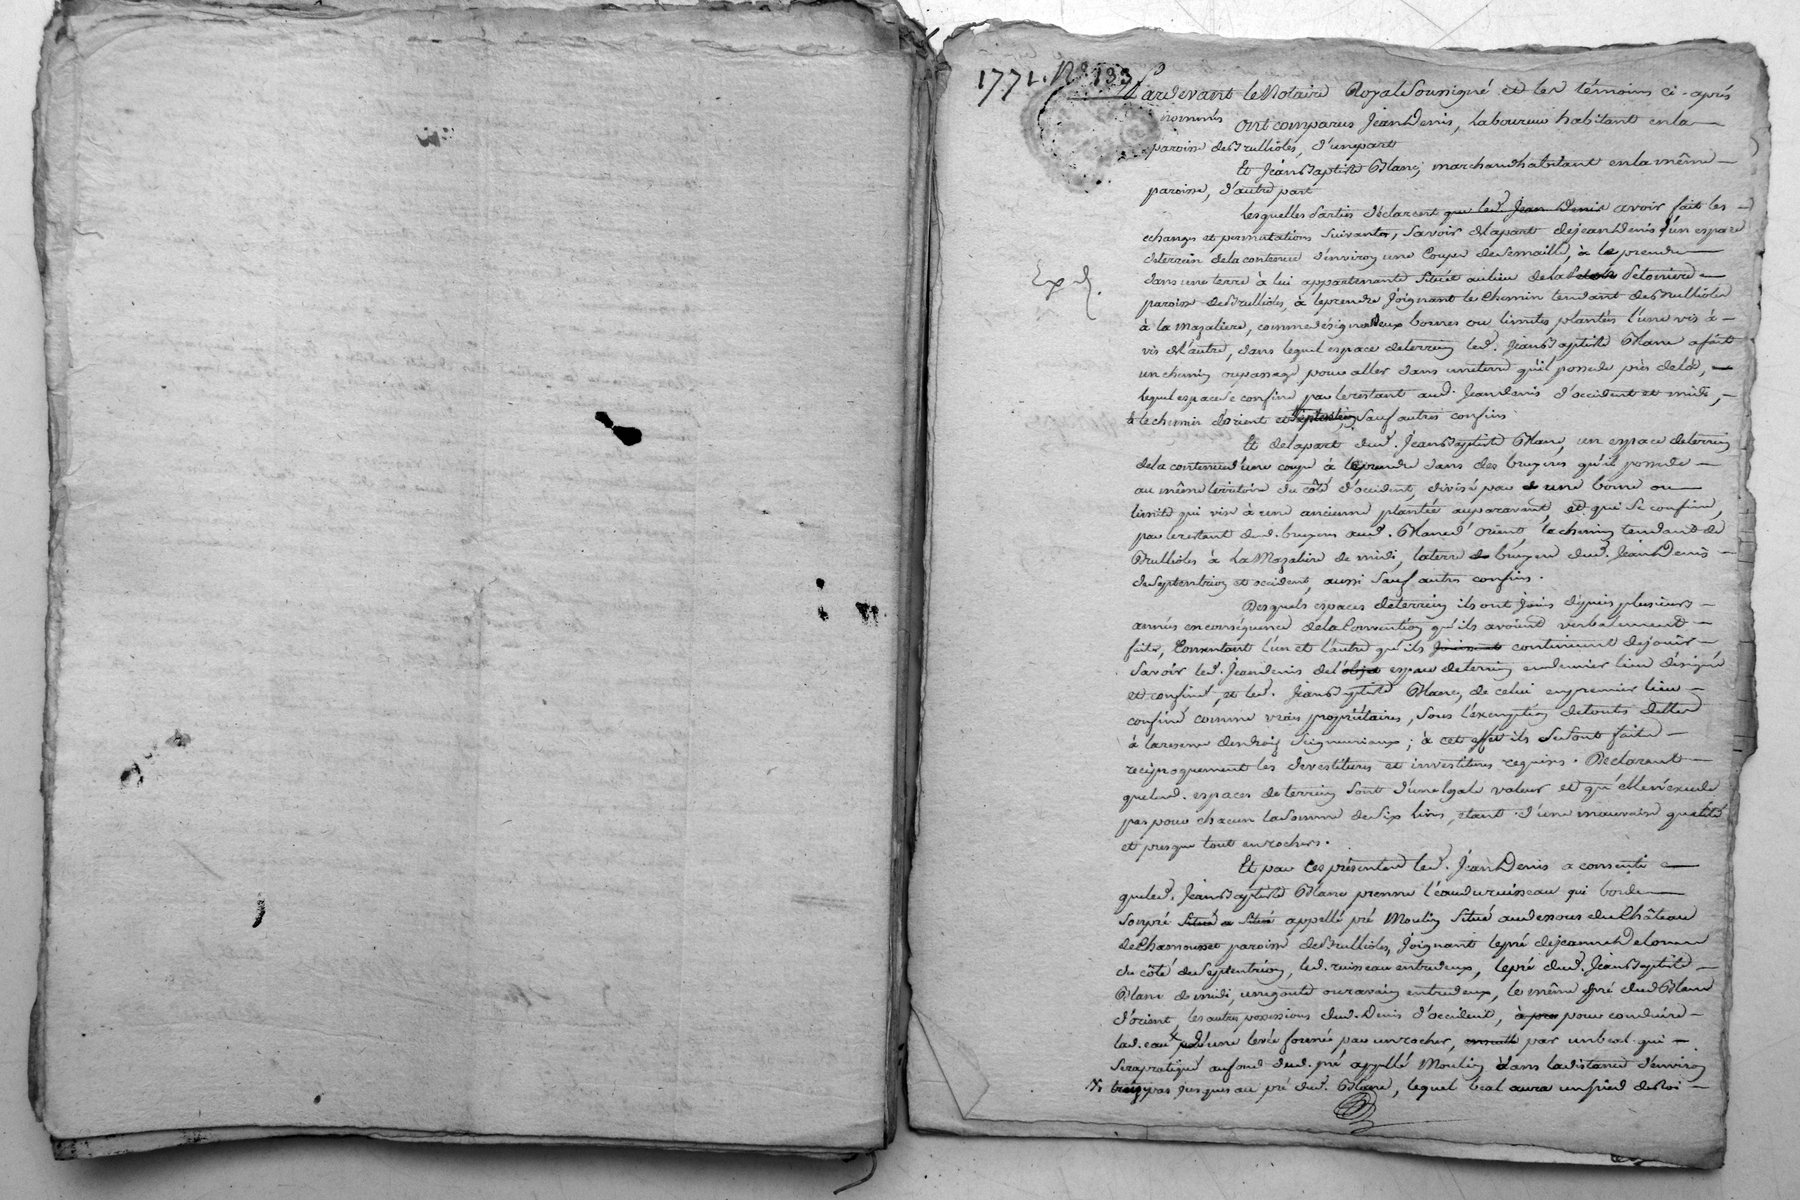 1771. N.º 133
Pardevant le Notaire Royal soussigné et les témoins ci-après
nommés Ont comparus Jean Denis, laboureur habitant en la
paroisse de Brullioles, d'une part
Et Jean Baptiste Blanc, marchand habitant en la même
paroisse, d'autre part
Lesquelles parties déclarent que led. Jean Denis avoir fait les
echanges et permutations suivantes, savoir de la part de jean Denis d'un espace
de terrein de la contenue d'environ une Coupe de semaille, à le prendre
Exp d.
dans une terre à lui appartenante située au lieu de la
paroisse de Brullioles, à le prendre joignant le Chemin tendant de Brullioles
à la Mazaliere, comme désigne deux bornes ou limites plantés l'une vis à
vis de l'autre, dans lequel espace de terrein led. Jean Baptiste Blanc a fait
un chemin ou passage pour aller dans une terre qu'il possede près de là,
lequel espace se confine par le restant aud. Jean Denis d'occident et midi,
& le chemin d'orient et septentrion, sauf autres confins
Et de la part dud. Jean Baptiste Blanc, un espace de terrein
de la contenue d'une coupe à le prendre dans des bruyeres qu'il possede
au même territoire du côté d'occident, divisé par une borne ou
limite qui vise à une ancienne plantée auparavant, et qui se confine,
par le restant desd. bruyeres aud. Blanc d'orient, le chemin tendant de
Brullioles à La Mazaliere de midi, la terre et bruyere dud. Jean Denis
de septentrion et occident, aussi sauf autres confins.
Desquels espaces de terrein ils ont joui depuis plusieurs
années en conséquence de la Convention qu'ils avoient verbalement
faite, Consentant l'un et l'autre qu'ils jouissent continuent de jouir
savoir led. Jean denis de l'objet espace de terrein en dernier lieu désigné
et confiné, et led. Jean Baptiste Blanc, de celui en premier lieu
confiné comme vrais propriétaires, sous l'exemption de toutes dettes
à la reserve des droits seigneuriaux; à cet effet ils se sont faits
reciproquement les devestitures et investitures requises. Declarant
que lesd. espaces de terrein sont d'une égale valeur et qu'elle n'excede
pas pour chacun la somme de six livres, étant d'une mauvaise qualité
et presque tout en rochers.
Et par ces présentes led. Jean Denis a consenti
que led. Jean Baptiste Blanc prenne l'eau du ruisseau qui borde
son pré situé a situé appellé pré Moulin situé au dessous du Château
de Chamousset paroisse de Brullioles, joignant le pré de jeanne Delorme
du côté de septentrion, led. ruisseau entredeux, le pré dud. Jean Baptiste
Blanc de midi, une goute ou ravin entredeux, le même pré dud Blanc
d'orient, les autres possessions dud. Denis d'occident, à pre pour conduire
lad. eau d'une levée formée par un rocher, ensuite par un beal qui
sera pratiqué au fond dud. pré appellé Moulin dans la distance d'environ
X treize pas jusques au pré dud. Blanc, lequel beal aura un pied de Roi